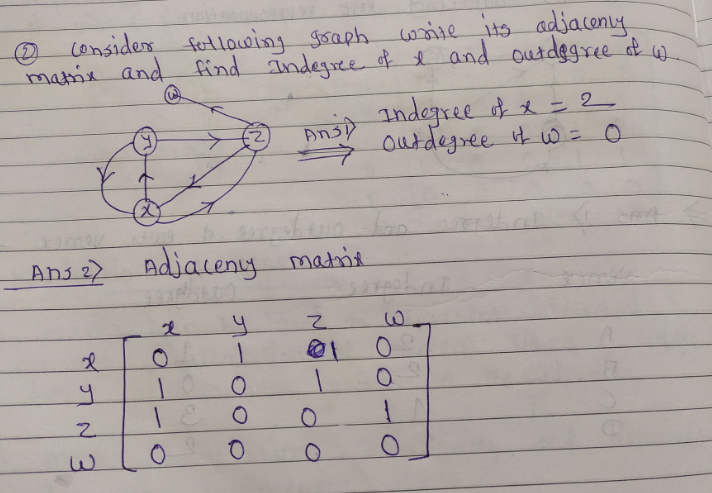 ② Consider following graph write its adjaceny
matrix and find Indegree of x and outdegree of w.
w
y
z
x
Ans 1) Indegree of x = 2
Outdegree of w = 0
Ans 2) Adjaceny matrix
x y z w
x 0 1 1 0
y 1 0 1 0
z 1 0 0 1
w 0 0 0 0